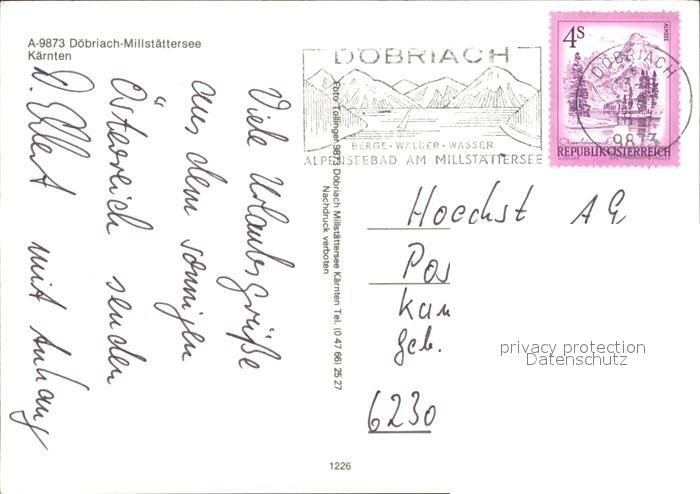 A-9873 Döbriach-Millstättersee
Kärnten
Viele Urlaubsgrüße
aus dem sonnigen
Österreich senden
D. Ehlert mit Anhang
Foto Tollinger 9873 Döbriach Millstättersee Kärnten Tel. (0 47 66) 25 27
Nachdruck verboten
DÖBRIACH
BERGE · WÄLDER · WASSER
ALPENSEEBAD AM MILLSTÄTTERSEE
4S
ALMSEE
REPUBLIK ÖSTERREICH
DÖBRIACH
9873
Hoechst AG
Pos
Kun
Geb.
6230
privacy protection
Datenschutz
1226